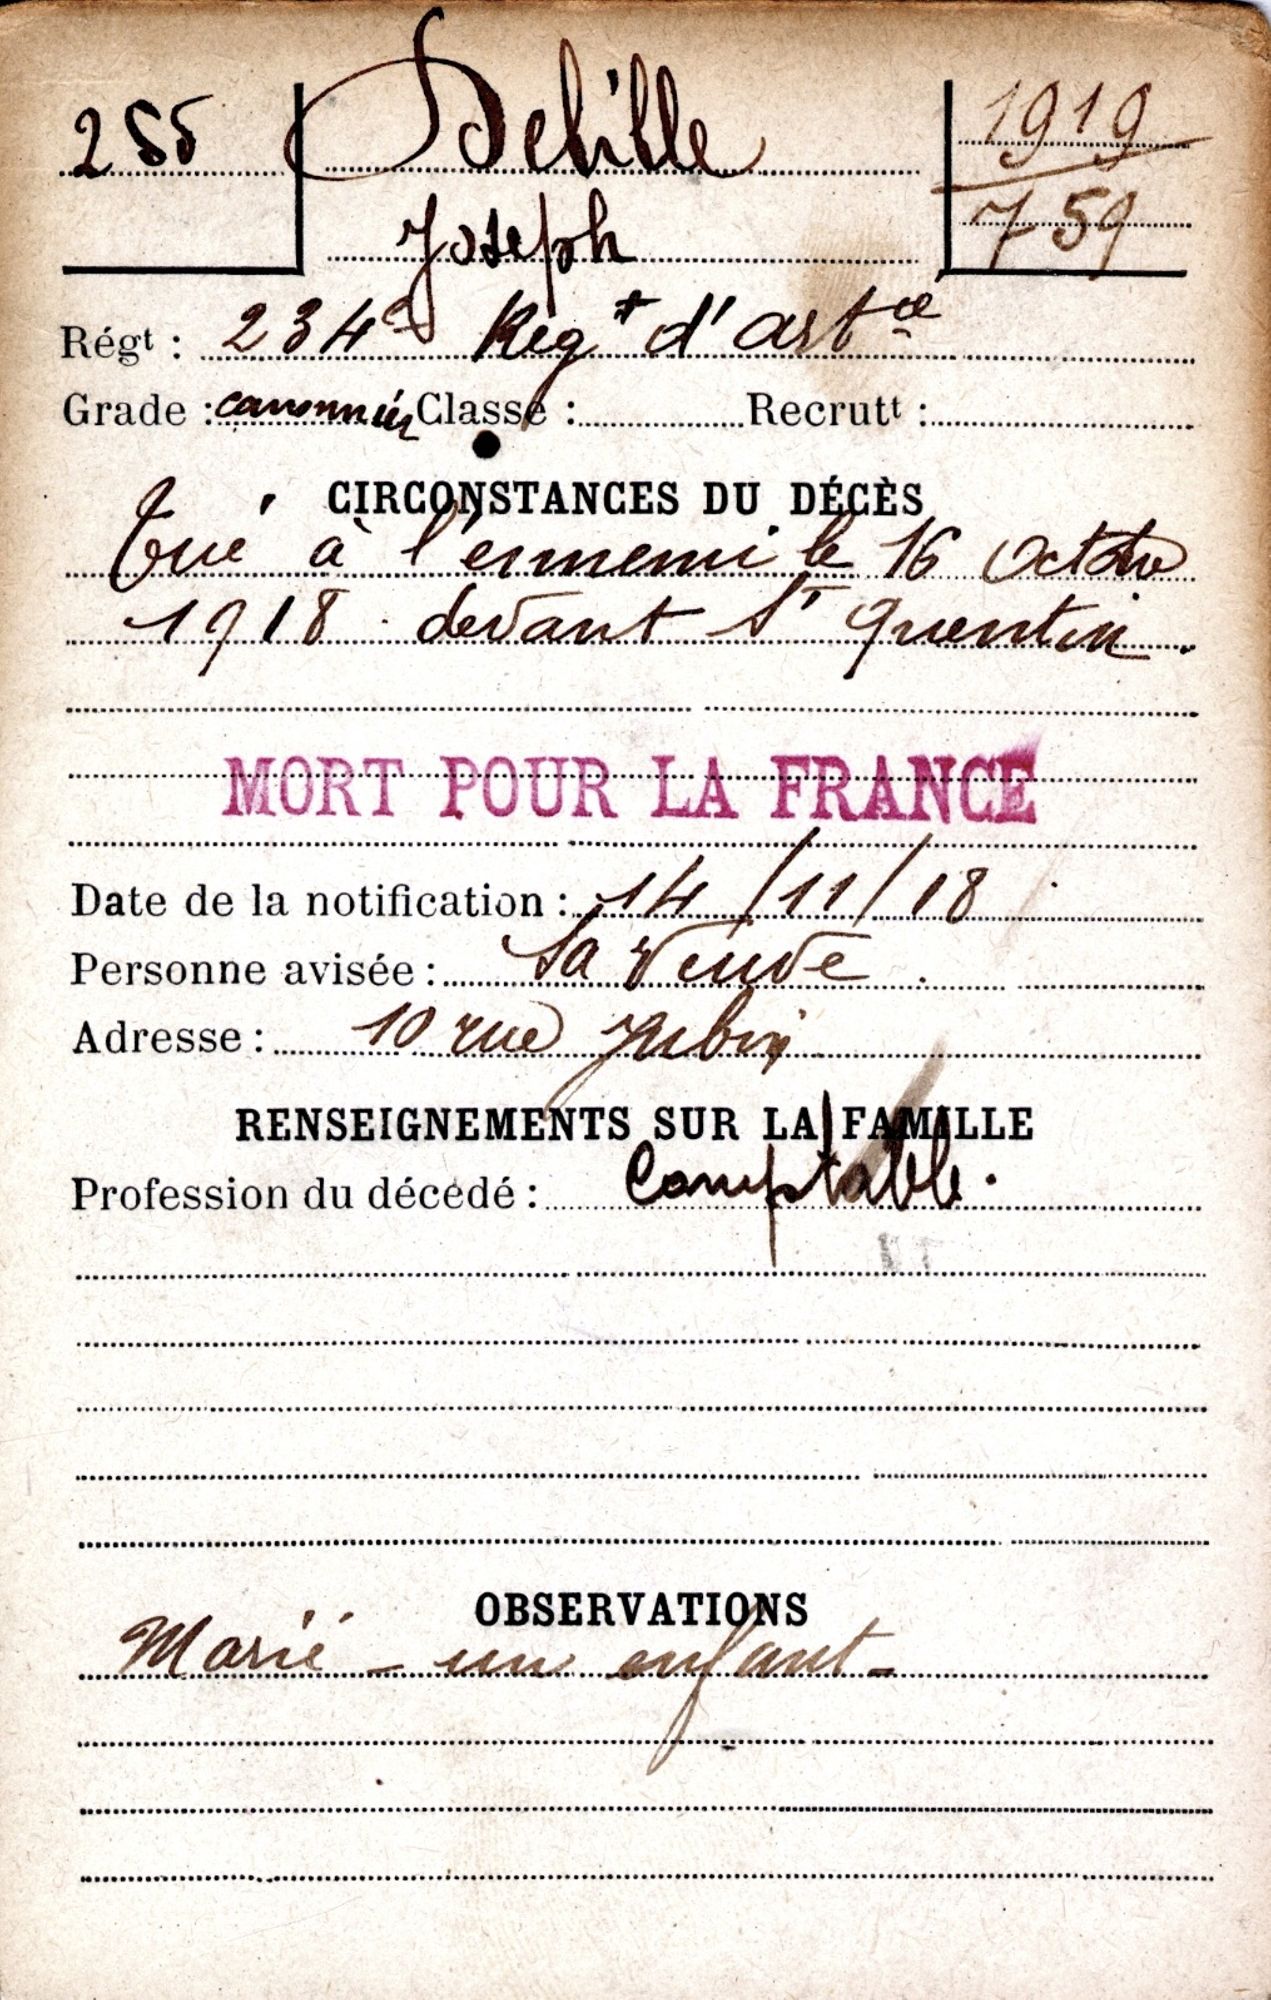 255
Debille
Joseph
1919
759
Régt : 234e Régt d'artie
Grade : canonnier Classe : Recrutt :
CIRCONSTANCES DU DÉCÈS
Tué à l'ennemi le 16 Octobre
1918 devant St Quentin.
MORT POUR LA FRANCE
Date de la notification : 14/11/18
Personne avisée : Sa Veuve
Adresse : 10 rue Jubin
RENSEIGNEMENTS SUR LA FAMILLE
Profession du décédé : Comptable.
OBSERVATIONS
Marié - un enfant -